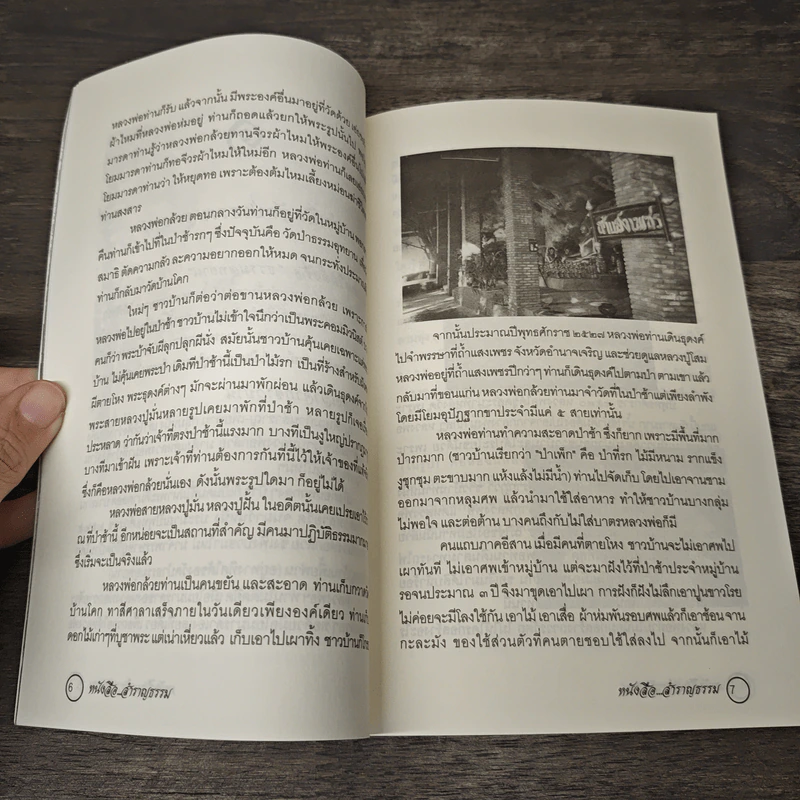 หลวงพ่อท่านก็รับ แล้วจากนั้น มีพระองค์อื่นมาอยู่ที่วัดด้วย
ผ้าไหมที่หลวงพ่อห่มอยู่ ท่านก็ถอดแล้วยกให้พระรูปนั้นไป
มารดาท่านรู้ว่าหลวงพ่อกล้วยทานจีวรผ้าไหมให้พระองค์อื่น
โยมมารดาท่านก็ทอจีวรผ้าไหมให้ใหม่อีก หลวงพ่อท่านก็เลย
โยมมารดาท่านว่า ให้หยุดทอ เพราะต้องต้มไหมเลี้ยงหม่อน
ท่านสงสาร
หลวงพ่อกล้วย ตอนกลางวันท่านก็อยู่ที่วัดในหมู่บ้าน
คืนท่านก็เข้าไปที่ในป่าช้ารกๆ ซึ่งปัจจุบันคือ วัดป่าธรรมอุทยาน
สมาธิ ตัดความกลัว ละความอยากออกให้หมด จนกระทั่ง
ท่านก็กลับมาวัดบ้านโคก
ใหม่ๆ ชาวบ้านก็ต่อว่าต่อขานหลวงพ่อกล้วย เพราะ
หลวงพ่อไปอยู่ในป่าช้า ชาวบ้านไม่เข้าใจนึกว่าเป็นพระคอมมิวนิสต์
คนก็ว่า พระบ้าจับผีลุกปลุกผีนั่ง สมัยนั้นชาวบ้านคุ้นเคยเฉพาะ
บ้าน ไม่คุ้นเคยพระป่า เดิมทีป่าช้านี้เป็นป่าไม้รก เป็นที่ร้างสำหรับ
ผีตายโหง พระธุดงค์ต่างๆ มักจะผ่านมาพักผ่อน แล้วเดินธุดงค์
พระสายหลวงปู่มั่นหลายรูปเคยมาพักที่ป่าช้า หลายรูปก็เจอ
ประหลาด ว่ากันว่าเจ้าที่ตรงป่าช้านี้แรงมาก บางทีเป็นงูใหญ่
บางทีมาเข้าฝัน เพราะเจ้าที่ท่านต้องการกันที่นี้ไว้ให้เจ้าของที่
ซึ่งก็คือหลวงพ่อกล้วยนั่นเอง ดังนั้นพระรูปใดมา ก็อยู่ไม่ได้
หลวงพ่อสายหลวงปู่มั่น หลวงปู่ฝั้น ในอดีตนั้นเคยเปรยเอาไว้
ณ ที่ป่าช้านี้ อีกหน่อยจะเป็นสถานที่สำคัญ มีคนมาปฏิบัติธรรม
ซึ่งเริ่มจะเป็นจริงแล้ว
หลวงพ่อกล้วยท่านเป็นคนขยัน และสะอาด ท่านเก็บกวาด
บ้านโคก ทาสีศาลาเสร็จภายในวันเดียวเพียงองค์เดียว ท่าน
ดอกไม้เก่าๆที่บูชาพระ แต่เน่าเหี่ยวแล้ว เก็บเอาไปเผาทิ้ง ชาวบ้านก็
6 หนังสือ...สำราญธรรม
ถ้ำแสงเพชร
จากนั้นประมาณปีพุทธศักราช ๒๕๒๗ หลวงพ่อท่านเดินธุดงค์
ไปจำพรรษาที่ถ้ำแสงเพชร จังหวัดอำนาจเจริญ และช่วยดูแลหลวงปู่โสม
หลวงพ่ออยู่ที่ถ้ำแสงเพชรปีกว่าๆ ท่านก็เดินธุดงค์ไปตามป่า ตามเขา แล้ว
กลับมาที่ขอนแก่น หลวงพ่อกล้วยท่านมาจำวัดที่ในป่าช้าแต่เพียงลำพัง
โดยมีโยมอุปัฏฐากขาประจำมีแค่ ๕ สายเท่านั้น
หลวงพ่อท่านทำความสะอาดป่าช้า ซึ่งก็ยาก เพราะมีพื้นที่มาก
ป่ารกมาก (ชาวบ้านเรียกว่า "ป่าเพ็ก" คือ ป่าที่รก ไม้มีหนาม รากแข็ง
งูชุกชุม ตะขาบมาก แห้งแล้งไม่มีน้ำ) ท่านไปจัดเก็บ โดยไปเอาจานชาม
ออกมาจากหลุมศพ แล้วนำมาใช้ใส่อาหาร ทำให้ชาวบ้านบางกลุ่ม
ไม่พอใจ และต่อต้าน บางคนถึงกับไม่ใส่บาตรหลวงพ่อก็มี
คนแถบภาคอีสาน เมื่อมีคนที่ตายโหง ชาวบ้านจะไม่เอาศพไป
เผาทันที ไม่เอาศพเข้าหมู่บ้าน แต่จะมาฝังไว้ที่ป่าช้าประจำหมู่บ้าน
รอจนประมาณ ๓ ปี จึงมาขุดเอาไปเผา การฝังก็ฝังไม่ลึกเอาปูนขาวโรย
ไม่ค่อยจะมีโลงใช้กัน เอาไม้ เอาเสื่อ ผ้าห่มพันรอบศพแล้วก็เอาช้อน จาน
กะละมัง ของใช้ส่วนตัวที่คนตายชอบใช้ใส่ลงไป จากนั้นก็เอาไม้
หนังสือ...สำราญธรรม 7